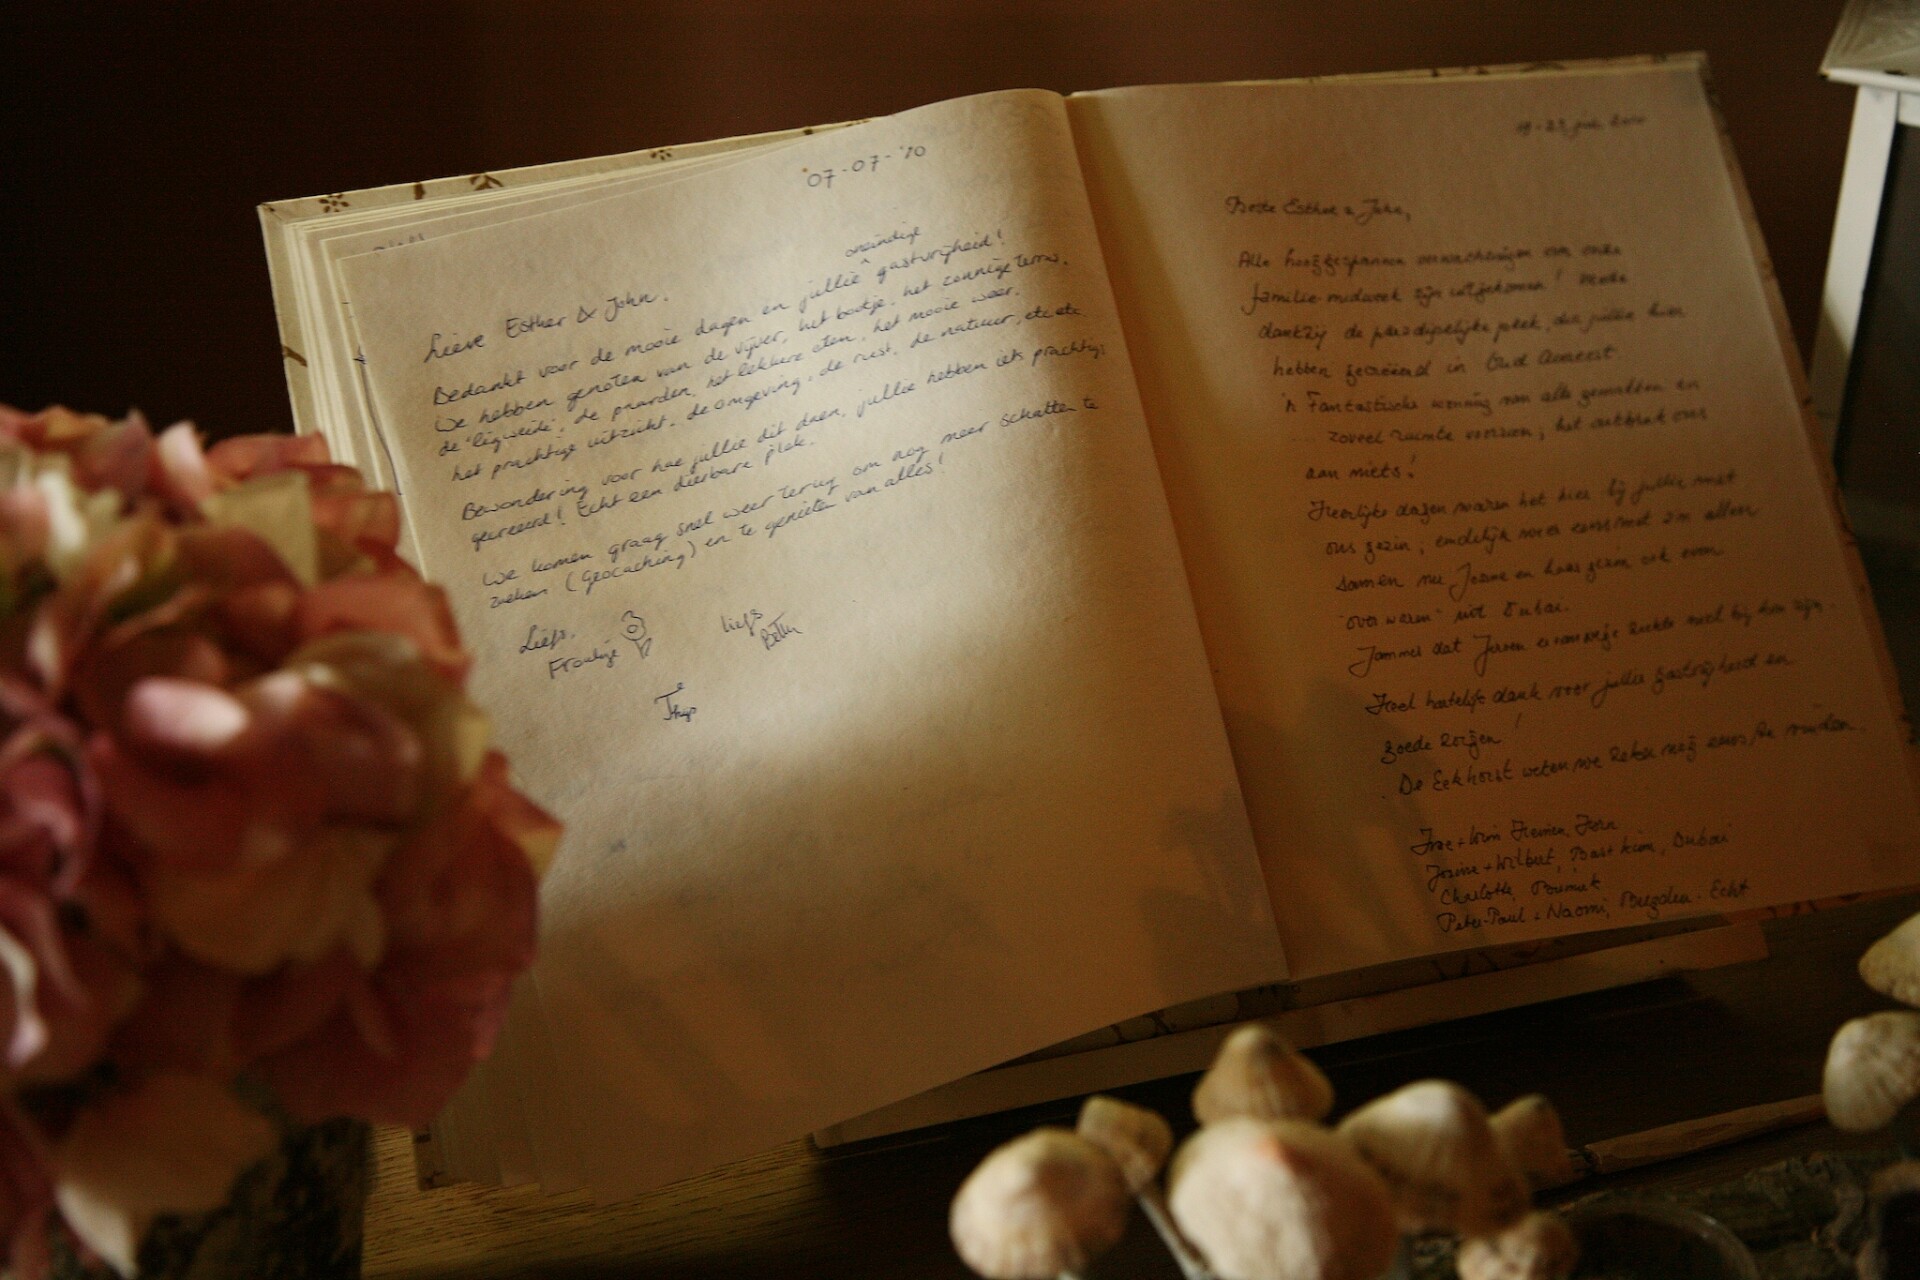 07-07-'10
Lieve Esther & John,
oneindige
Bedankt voor de mooie dagen en jullie ^ gastvrijheid!
We hebben genoten van de vijver, het bootje, het zonnige terras,
de 'ligweide', de paarden, het lekkere eten, het mooie weer,
het prachtige uitzicht, de omgeving, de rust, de natuur, etc etc
Bewondering voor hoe jullie dit doen, jullie hebben iets prachtigs
gecreeerd! Echt een dierbare plek.
We komen graag snel weer terug om nog meer schatten te
zoeken (Geocaching) en te genieten van alles!
Liefs,
liefs
Thijs
Beste Esther & John,
Alle hooggespannen verwachtingen om onze
familie-midweek zijn uitgekomen! Mede
dankzij de paradijselijke plek, die jullie hier
hebben gecreëerd in Oud Avereest.
'n Fantastische woning van alle gemakken en
zoveel ruimte voorzien; het ontbrak ons
aan niets!
Heerlijke dagen waren het hier bij jullie met
ons gezin; eindelijk weer eens met z'n allen
samen nu Josine en haar gezin ook even
"over waren" uit Dubai.
Jammer dat Jeroen er vanwege ziekte niet bij kon zijn.
Heel hartelijk dank voor jullie gastvrijheid en
goede zorgen!
De Eekhorst weten we zeker nog eens te vinden.
Josine + Wilbert, Bast Kim, Dubai
Charlotte,
Peter-Paul + Naomi, Echt